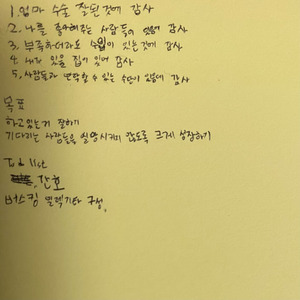 1. 엄마 수술 잘된것에 감사
2. 나를 좋아해주는 사람들이 있음에 감사
3. 부족하더라도 수입이 있는것에 감사
4. 내가 있을 집이 있어 감사
5. 사람들과 연락할 수 있는 수단이 있음에 감사
목표
하고있는거 잘하기
기다리는 사람들을 실망시키지 않도록 크게 성장하기
To do list
간호
버스킹 일렉기타 구성